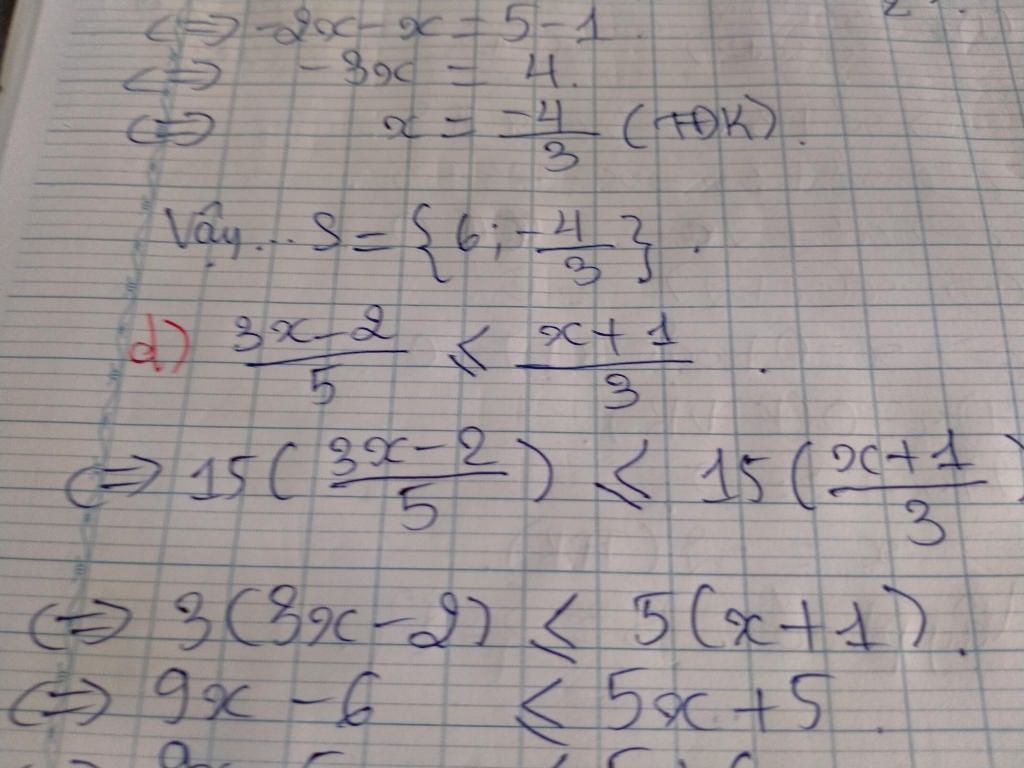 ⇔ -2x - x = 5 - 1.
⇔ -3x = 4.
⇔ x = \frac{-4}{3} (TĐK).
Vậy... S = {6; -\frac{4}{3}}.
d) \frac{3x-2}{5} ≤ \frac{x+1}{3}.
⇔ 15(\frac{3x-2}{5}) ≤ 15(\frac{x+1}{3})
⇔ 3(3x-2) ≤ 5(x+1).
⇔ 9x - 6 ≤ 5x + 5.